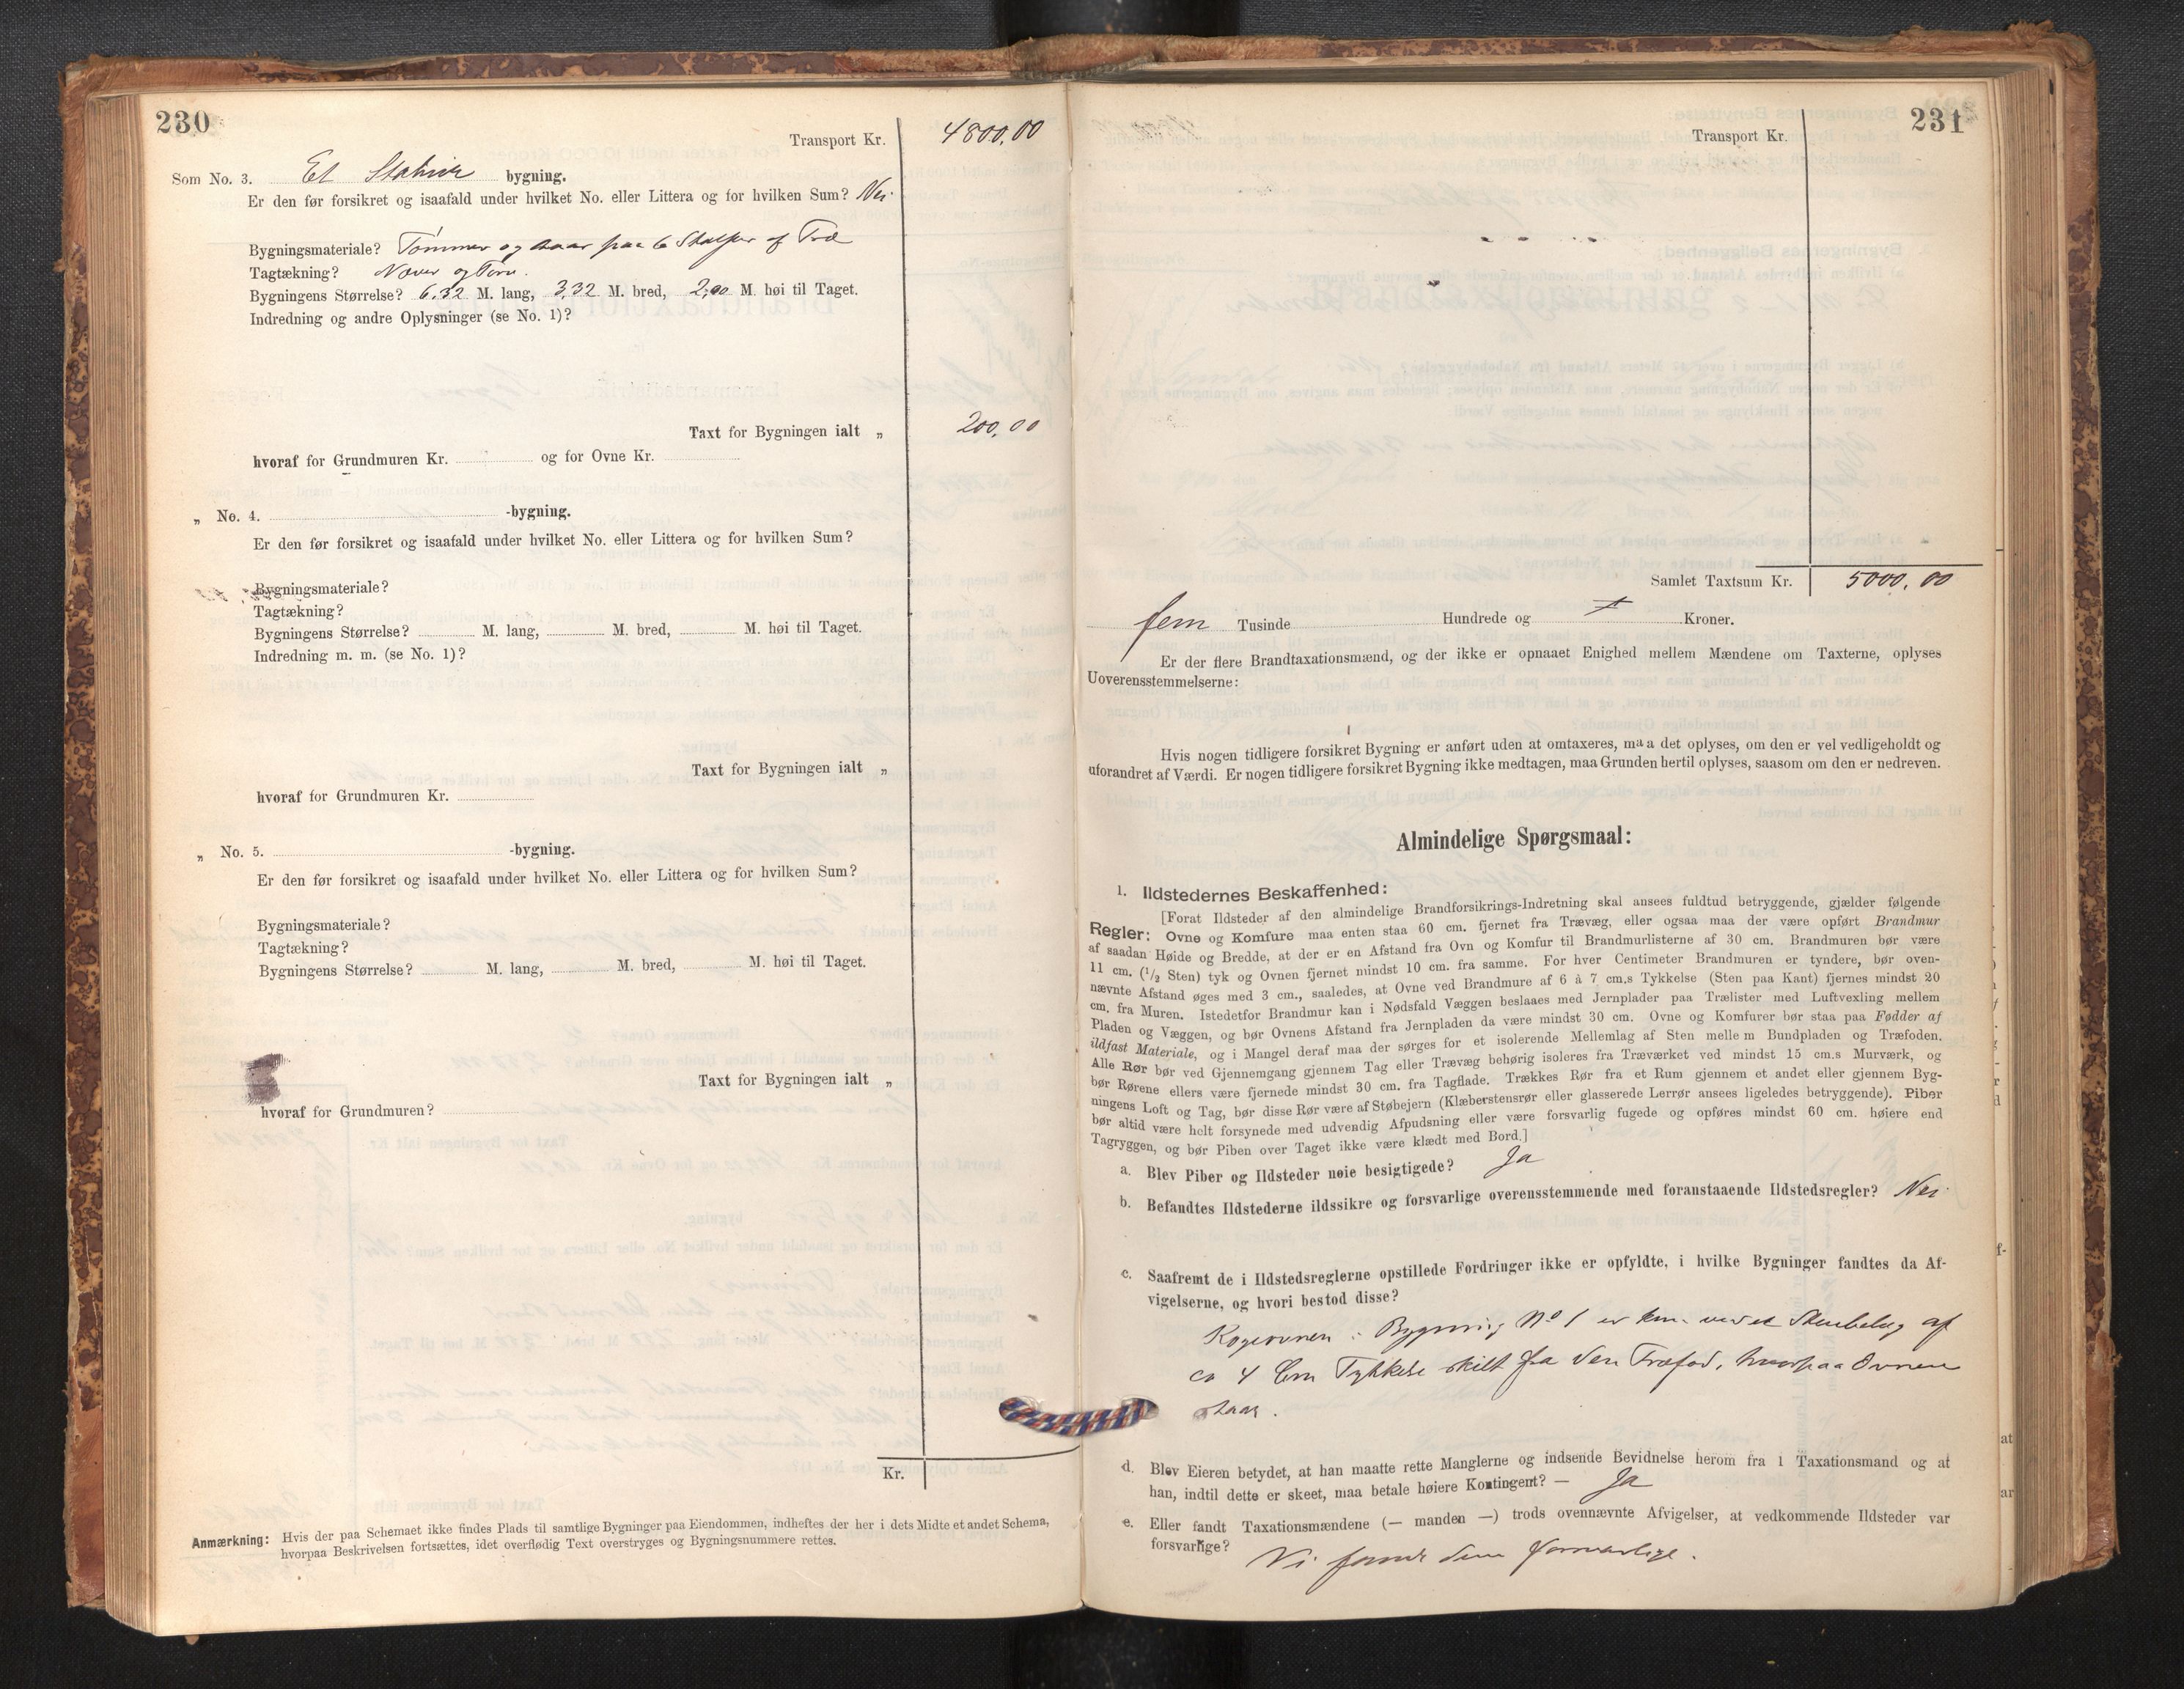 230
Transport Kr. 4800,00
Som No. 3. Et Stabur bygning.
Er den før forsikret og isaafald under hvilket No. eller Littera og for hvilken Sum? Nei.
Bygningsmateriale? Tømmer og staar paa 6 Stolper af Træ
Tagtækning? Næver og Torv.
Bygningens Størrelse? 6,32 M. lang, 3,32 M. bred, 2,00 M. høi til Taget.
Indredning og andre Oplysninger (se No. 1)?
Taxt for Bygningen ialt „ 200,00
hvoraf for Grundmuren Kr. og for Ovne Kr.
„ No. 4. -bygning.
Er den før forsikret og isaafald under hvilket No. eller Littera og for hvilken Sum?
Bygningsmateriale?
Tagtækning?
Bygningens Størrelse? M. lang, M. bred, M. høi til Taget.
Indredning m. m. (se No. 1)?
Taxt for Bygningen ialt „
hvoraf for Grundmuren Kr.
„ No. 5. -bygning.
Er den før forsikret og isaafald under hvilket No. eller Littera og for hvilken Sum?
Bygningsmateriale?
Tagtækning?
Bygningens Størrelse? M. lang, M. bred, M. høi til Taget.
Taxt for Bygningen ialt „
hvoraf for Grundmuren?
Kr.
Anmærkning: Hvis der paa Schemaet ikke findes Plads til samtlige Bygninger paa Eiendommen, indheftes der her i dets Midte et andet Schema,
hvorpaa Beskrivelsen fortsættes, idet overflødig Text overstryges og Bygningsnummere rettes.
231
Transport Kr.
Samlet Taxtsum Kr. 5000,00
fem Tusinde Hundrede og Kroner.
Er der flere Brandtaxationsmænd, og der ikke er opnaaet Enighed mellem Mændene om Taxterne, oplyses
Uoverensstemmelserne:
Hvis nogen tidligere forsikret Bygning er anført uden at omtaxeres, maa det oplyses, om den er vel vedligeholdt og
uforandret af Værdi. Er nogen tidligere forsikret Bygning ikke medtagen, maa Grunden hertil oplyses, saasom om den er nedreven.
Almindelige Spørgsmaal:
1. Ildstedernes Beskaffenhed:
[Forat Ildsteder af den almindelige Brandforsikrings-Indretning skal ansees fuldtud betryggende, gjælder følgende
Regler: Ovne og Komfure maa enten staa 60 cm. fjernet fra Trævæg, eller ogsaa maa der være opført Brandmur
af saadan Høide og Bredde, at der er en Afstand fra Ovn og Komfur til Brandmurlisterne af 30 cm. Brandmuren bør være
11 cm. (1/2 Sten) tyk og Ovnen fjernet mindst 10 cm. fra samme. For hver Centimeter Brandmuren er tyndere, bør oven-
nævnte Afstand øges med 3 cm., saaledes, at Ovne ved Brandmure af 6 à 7 cm.s Tykkelse (Sten paa Kant) fjernes mindst 20
cm. fra Muren. Istedetfor Brandmur kan i Nødsfald Væggen beslaaes med Jernplader paa Trælister med Luftvexling mellem
Pladen og Væggen, og bør Ovnens Afstand fra Jernpladen da være mindst 30 cm. Ovne og Komfurer bør staa paa Fødder af
ildfast Materiale, og i Mangel deraf maa der sørges for et isolerende Mellemlag af Sten mellem Bundpladen og Træfoden.
Alle Rør bør ved Gjennemgang gjennem Tag eller Trævæg behørig isoleres fra Træværket ved mindst 15 cm.s Murværk, og
bør Rørene ellers være fjernede mindst 30 cm. fra Tagflade. Trækkes Rør fra et Rum gjennem et andet eller gjennem Byg-
ningens Loft og Tag, bør disse Rør være af Støbejern (Klæberstensrør eller glasserede Lerrør ansees ligeledes betryggende). Piber
bør altid være helt forsynede med udvendig Afpudsning eller være forsvarlig fugede og opføres mindst 60 cm. høiere end
Tagryggen, og bør Piben over Taget ikke være klædt med Bord.]
a. Blev Piber og Ildsteder nøie besigtigede? Ja
b. Befandtes Ildstederne ildssikre og forsvarlige overensstemmende med foranstaaende Ildstedsregler? Nei.
c. Saafremt de i Ildstedsreglerne opstillede Fordringer ikke er opfyldte, i hvilke Bygninger fandtes da Af-
vigelserne, og hvori bestod disse?
Kogeovnen i Bygning No 1 er kun ved et Stenbelæg af
ca 4 Cm Tykkelse skilt fra den Træfod, hvorpaa Ovnen
staar.
d. Blev Eieren betydet, at han maatte rette Manglerne og indsende Bevidnelse herom fra 1 Taxationsmand og at
han, indtil dette er skeet, maa betale høiere Kontingent? — Ja
e. Eller fandt Taxationsmændene (— manden —) trods ovennævnte Afvigelser, at vedkommende Ildsteder var
forsvarlige? Vi fandt dem forsvarlige.